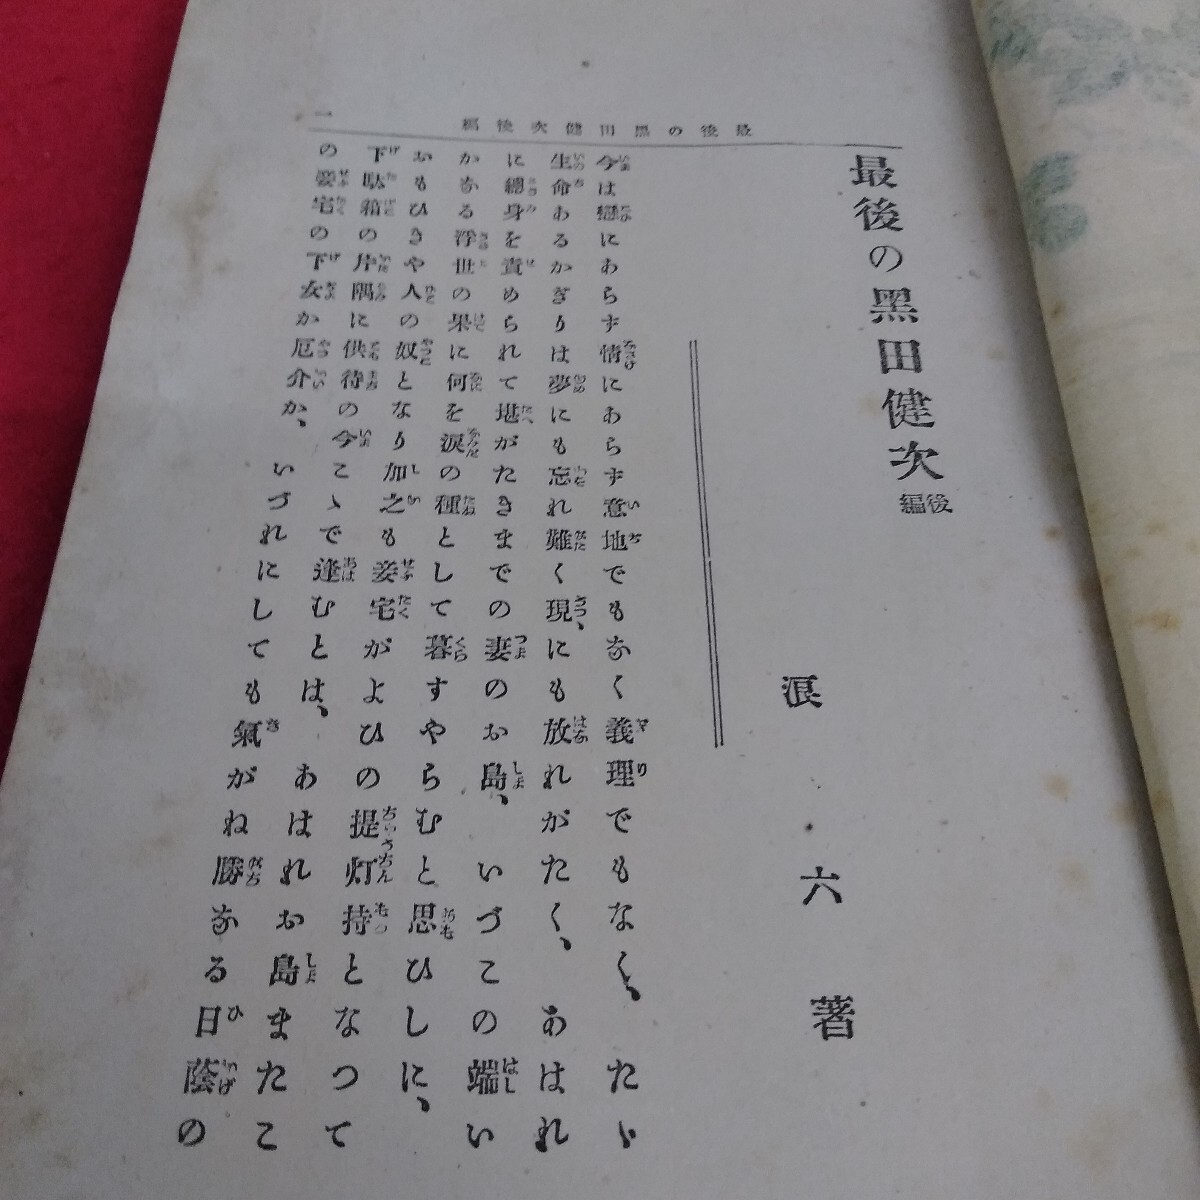 最後の黒田健次後編
一
最後の黒田健次 後編
浪六著
今は戀にあらず情にあらず意地でもなく義理でもなく、たゞ
生命あるかぎりは夢にも忘れ難く現にも放れがたく、あはれ
に總身を責められて堪がたきまでの妻のお島、いづこの端い
かなる浮世の果に何を涙の種として暮すやらむと思ひしに、
おもひきや人の奴となり加之も妾宅がよひの提灯持となつて
下駄箱の片隅に供待の今こゝで逢むとは、あはれお島またこ
の妾宅の下女か厄介か、いづれにしても氣がね勝なる日蔭の